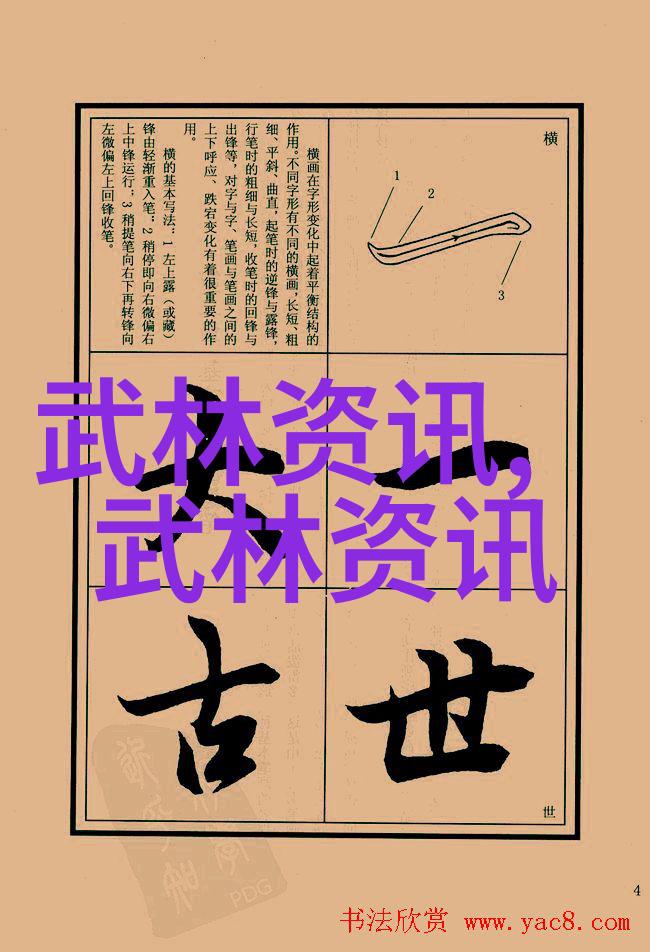 横
1
2
3
横画在字形变化中起着平衡结构的
作用。不同字形有不同的横画，长短、粗
细、平斜、曲直，起笔时的逆锋与露锋，
行笔时的粗细与长短，收笔时的回锋与
出锋等，对字与字、笔画与笔画之间的
上下呼应、跌宕变化有着很重要的作
用。
横的基本写法：1 左上露（或藏）
锋由轻渐重入笔；2 稍停即向右微偏右
上中锋运行；3 稍提笔向右下再转锋向
左微偏左上回锋收笔。
一
大
武林资讯，
武林资讯
世
古
世
PDG
4
书法欣赏 www.yac8.com